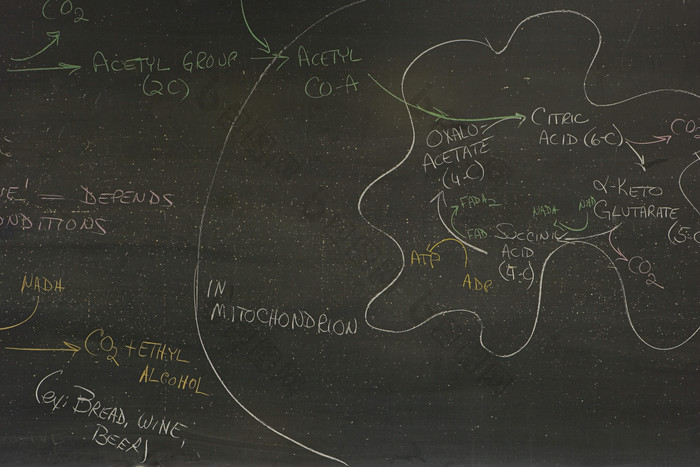 CO2
ACETYL GROUP
(2C)
ACETYL
CO-A
CITRIC
ACID (6-C)
CO2
OXALO-
ACETATE
(4-C)
α-KETO
GLUTARATE
(5-C
CO2
NAD
NADA
FADA2
FAD
SUCCINIC
ACID
(4-C)
ATP
ADP
= DEPENDS
ONDITIONS
IN
MITOCHONDRION
NADH
CO2 + ETHYL
ALCOHOL
(ex: BREAD, WINE,
BEER)